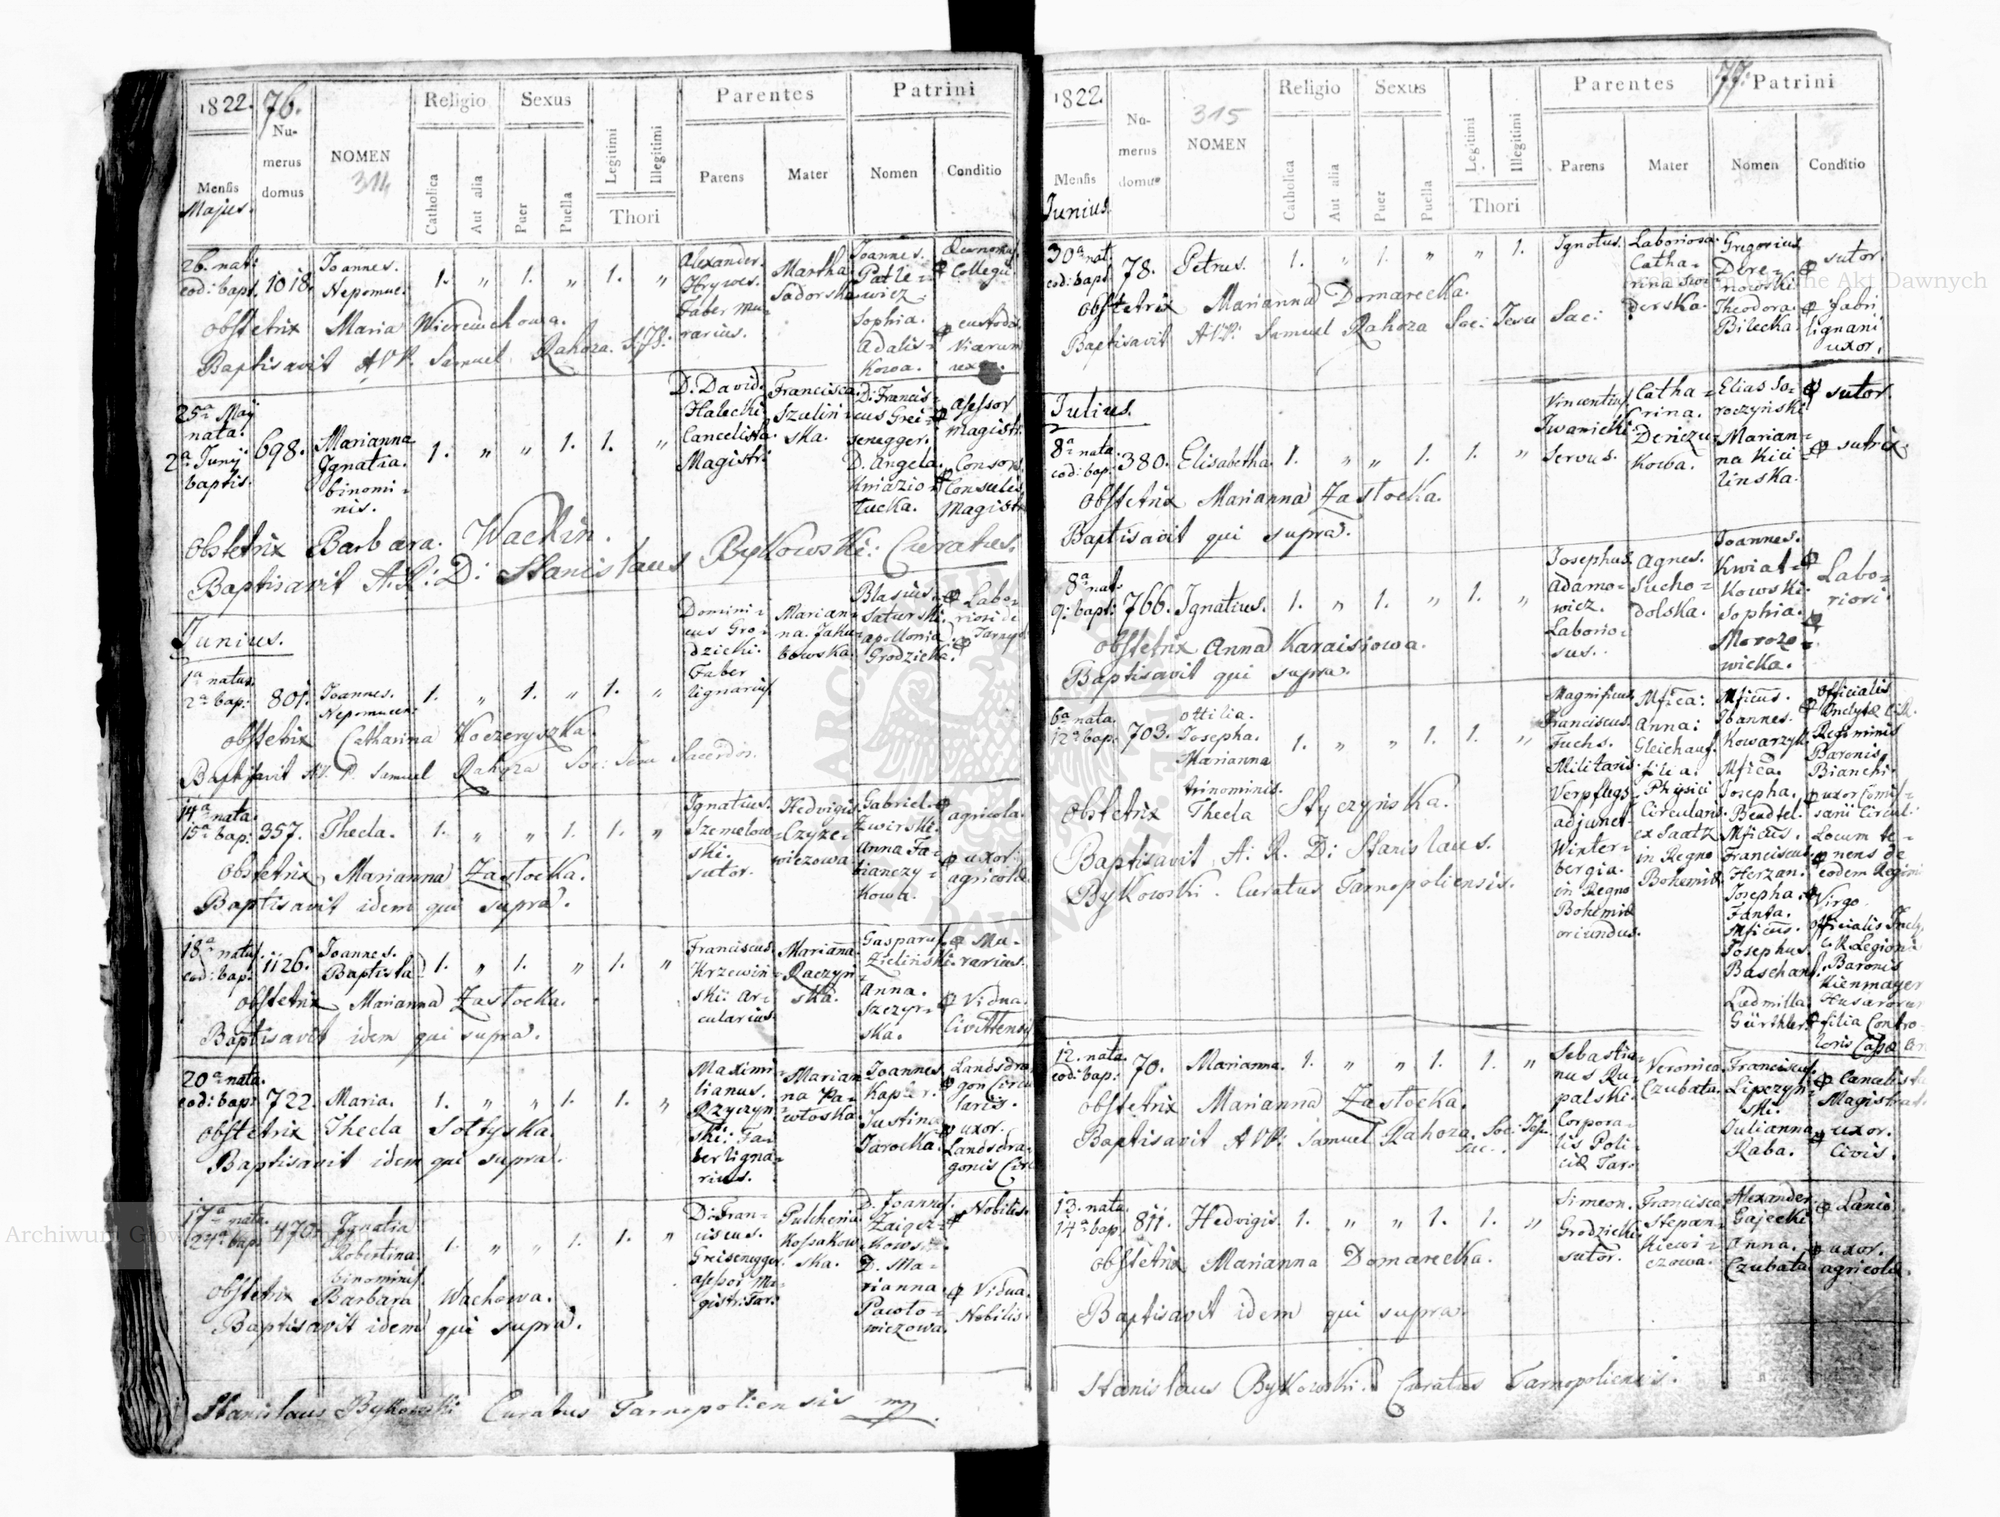 1822. 76.
Nu-
merus
domus
NOMEN
314
Religio
Sexus
Parentes
Patrini
Mensis
Majus.
Catholica
Aut alia
Puer
Puella
Legitimi
Illegitimi
Thori
Parens
Mater
Nomen
Conditio
26. nat:
eod: bapt.
1018.
Joannes.
Nepomuc:
1. „ 1. „ 1. „
Alexander.
Hrywes.
Faber mu-
rarius.
Martha
Sadorska
Joannes.
Patle-
wicz.
Sophia.
Adalis-
kowa.
Collegii
custodis
viarum
uxor.
Obstetrix Maria Wierewchowa.
Baptisavit A V P. Samuel Rahoza. S: J: S:
25a May
nata.
2a Junij
baptis.
698.
Marianna
Ignatia.
binomi-
nis.
1. „ „ 1. 1. „
D: David.
Halecki
Cancelista
Magistr:
Francisca
Szulin-
ska.
D: Francis-
cus Grei-
senegger.
D. Angela
Kniazio-
lucka.
Assessor
Magistr:
Consors
Consulis
Magistr:
Obstetrix Barbara. Wachin.
Baptisavit A: R: D: Stanislaus Bykowski: Curatus.
Junius.
1a natus.
2a bap:
801.
Joannes.
Nepomucen:
1. „ 1. „ 1. „
Domini-
cus Gro-
dzicki.
Faber
lignarius.
Marian-
na. Jaku-
bowska.
Blasius.
Saturski.
Apollonia
Grodzicka.
Labo-
riosi de
Obstetrix Catharina Koczeryszka.
Baptisavit AV. P. Samuel Rahoza Soc: Jesu Sacerdos.
14a nata.
15a bap:
357.
Thecla.
1. „ „ 1. 1. „
Ignatius.
Szemelow-
ski.
sutor.
Hedvigis
Czyze-
wiczowa
Gabriel.
Zwirski.
Anna Fa-
bianczy-
kowa.
agricola.
uxor.
agricolæ
Obstetrix Marianna Zastocka.
Baptisavit idem qui supra.
18a natus.
eod: bap:
1126.
Joannes.
Baptista
1. „ 1. „ 1. „
Franciscus
Krzewin-
ski Ar-
cularius.
Marianna.
Raczyn-
ska.
Gasparus
Zielinski.
Anna.
Szczyr-
ska.
Mu-
rarius.
Vidua.
Obstetrix Marianna Zastocka.
Baptisavit idem qui supra.
20a nata.
eod: bap:
722.
Maria.
1. „ „ 1. 1. „
Maximi-
lianus.
Rzyczyn-
ski: Fa-
ber ligna-
rius.
Marian-
na Pa-
wloska.
Joannes.
Kapler.
Justina
Jarocka.
Landsdra-
gon Circu-
laris.
uxor.
Landsdra-
gonis Circ
Obstetrix Thecla Soltyska.
Baptisavit idem qui supra.
17a nata.
24a bap:
470.
Ignatia
Robertina.
binominis
1. „ „ 1. 1. „
D: Fran-
ciscus.
Greisenegger.
assessor Ma-
gistr: Tar:
Pulcheria
Kossakow-
ska.
D. Joannes.
Zaigcz-
kowski.
D. Ma-
rianna
Pawlo-
wiczowa.
Nobilis.
Vidua.
Nobilis.
Obstetrix Barbara Wachowa.
Baptisavit idem qui supra.
Stanislaus Bykowski Curatus Tarnopoliensis mp.
1822.
Nu-
merus
domus
315
NOMEN
Religio
Sexus
Parentes
77. Patrini
Mensis
Junius.
Catholica
Aut alia
Puer
Puella
Legitimi
Illegitimi
Thori
Parens
Mater
Nomen
Conditio
30a nat.
eod: bapt
78.
Petrus.
1. „ 1. „ „ 1.
Ignotus.
Laboriosa.
Catha-
rina Swi-
derska.
Gregorius.
Dere-
nowski.
Theodora.
Bilecka.
sutor.
Fabri
lignarii
uxor.
Obstetrix Marianna Domarecka.
Baptisavit A VP: Samuel Rahoza Soc: Jesu Sac:
Julius.
8a nata
eod: bap:
380.
Elisabetha.
1. „ „ 1. 1. „
Vincentius
Iwanicki
Servus.
Catha-
rina.
Denczu-
kowa.
Elias So-
roczyński
Marian-
na Kici-
linska.
sutor.
sutrix.
Obstetrix Marianna Zastocka.
Baptisavit qui supra.
8a nat:
9: bapt:
766.
Ignatius.
1. „ 1. „ 1. „
Josephus.
Adamo-
wicz.
Laborio-
sus.
Agnes.
Sucho-
dolska.
Joannes.
Kwiat-
kowski.
Sophia.
Morozo-
wicka.
Labo-
riosi.
Obstetrix Anna Karaisiowa.
Baptisavit qui supra.
6a nata.
12a bap:
703.
Ottilia.
Josepha.
Marianna
trinominis.
1. „ „ 1. 1. „
Magnificus.
Franciscus.
Fuchs.
Militaris
Verpflegs-
adjunct-
Winter-
bergia.
in Regno
Bohemiæ
oriundus.
Mfica:
Anna:
Gleichauf.
filia.
Physici
Circularis
ex Saatz
in Regno
Bohemiæ
Mficus.
Joannes.
Kowarzyk.
Mfica.
Josepha.
Bendtel.
Mficus.
Franciscus
Herzan.
Josepha
Fanta.
Mficus.
Josephus
Baschant.
Ludmilla.
Gürthler.
Officialis
Inclytæ C.R.
Regiminis
Baronis
Bianchi.
uxor Comis-
sarii Circuli
Locum te-
nens de
eodem Regim
Virgo.
Officialis Incly
C.R. Legionis
Baronis
Kienmayer
Husarorum
filia Contro-
loris Cassæ
Obstetrix Thecla Styczyńska.
Baptisavit A: R. D: Stanislaus.
Bykowski. Curatus Tarnopoliensis.
12. nata.
eod: bap:
70.
Marianna.
1. „ „ 1. 1. „
Sebastia-
nus Ru-
palski.
Corpora-
lis Poli-
ciæ Tar:
Veronica
Czubata.
Franciscus.
Lipczyn-
ski.
Julianna
Raba.
Cancelista
Magistrat.
uxor.
Civis.
Obstetrix Marianna Zastocka.
Baptisavit A VP: Samuel Rahoza. Soc: Jesu.
Sac:.
13. nata.
14a bap:
811.
Hedvigis.
1. „ „ 1. 1. „
Simeon.
Grodzicki
sutor.
Francisca
Stepan-
kiewi-
czowa.
Alexander.
Gajecki
Anna.
Czubata
Lanio.
uxor.
agricolæ.
Obstetrix Marianna Domarecka.
Baptisavit idem qui supra.
Stanislaus Bykowski. Curatus Tarnopoliensis.